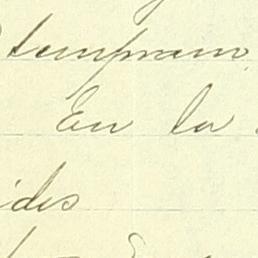 temprano
En la
ides